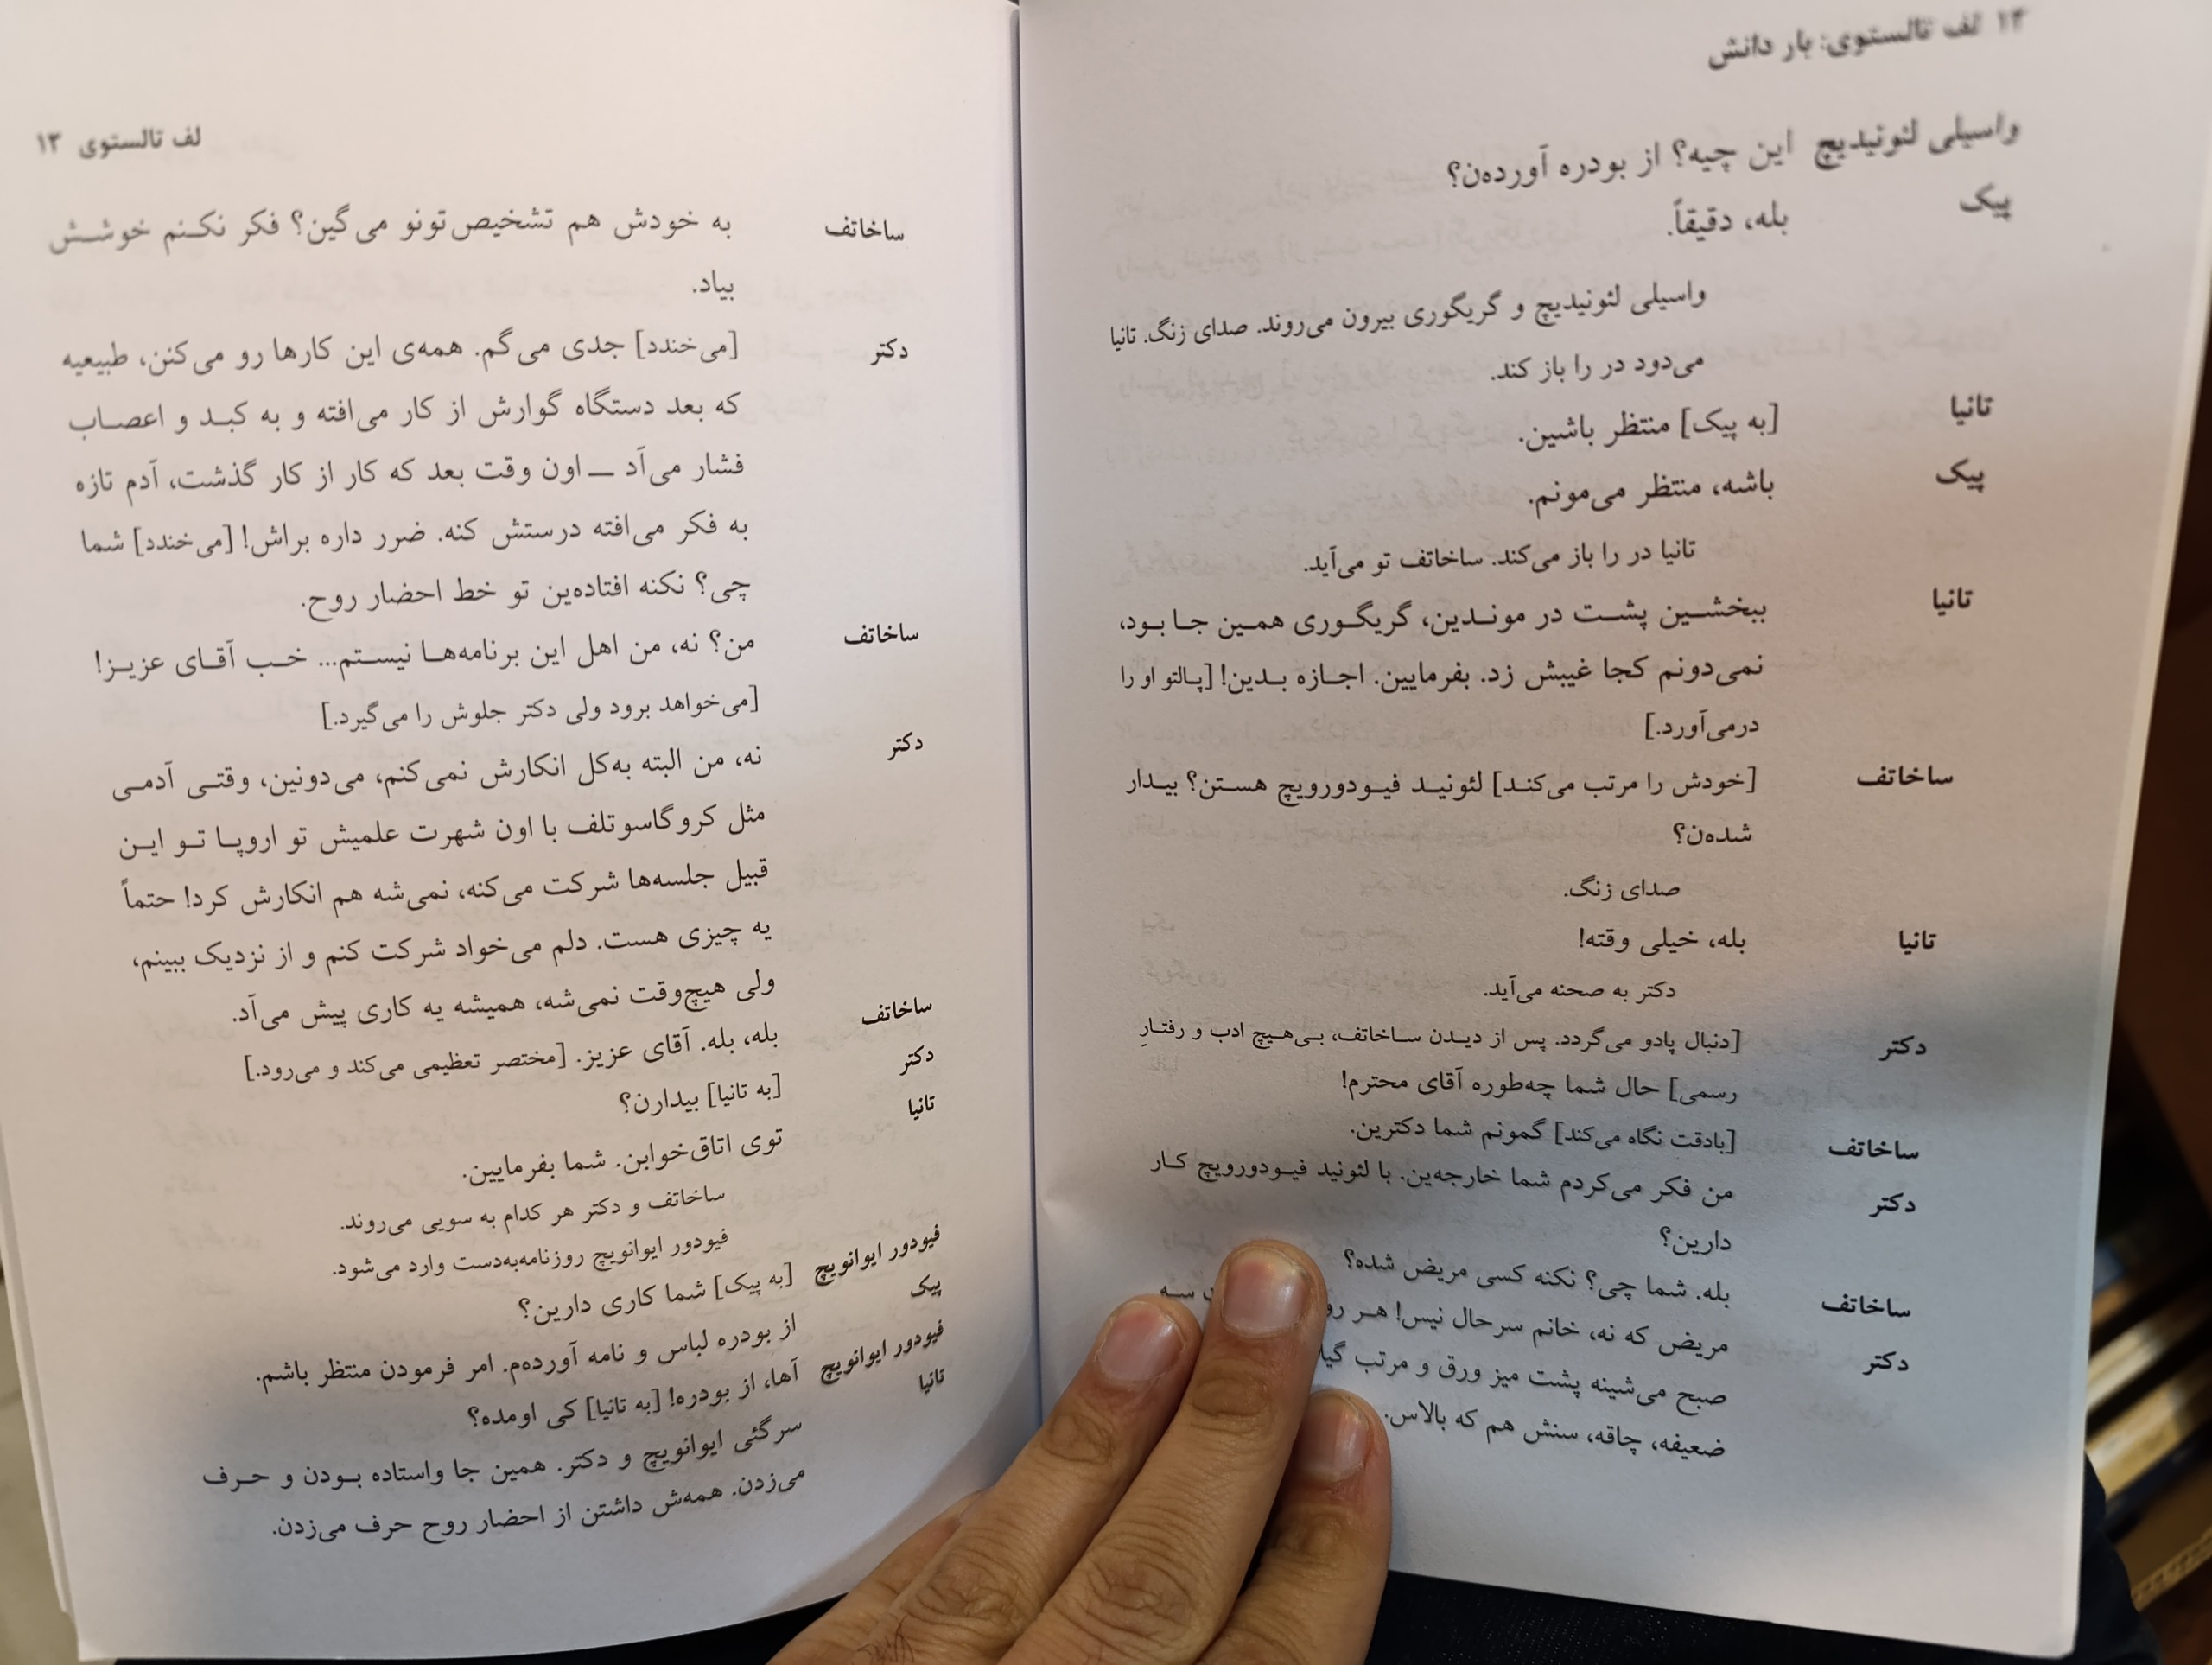 ۱۲ لف تالستوی: بار دانش
واسیلی لئونیدیچ این چیه؟ از بودره آورده‌ن؟
پیک بله، دقیقاً.
واسیلی لئونیدیچ و گریگوری بیرون می‌روند. صدای زنگ. تانیا
می‌دود در را باز کند.
تانیا [به پیک] منتظر باشین.
پیک باشه، منتظر می‌مونم.
تانیا در را باز می‌کند. ساخاتف تو می‌آید.
تانیا ببخشین پشت در موندین، گریگوری همین جا بود،
نمی‌دونم کجا غیبش زد. بفرمایین. اجازه بدین! [پالتو او را
درمی‌آورد.]
ساخاتف [خودش را مرتب می‌کند] لئونید فیودورویچ هستن؟ بیدار
شده‌ن؟
صدای زنگ.
تانیا بله، خیلی وقته!
دکتر به صحنه می‌آید.
دکتر [دنبال پادو می‌گردد. پس از دیدن ساخاتف، بی‌هیچ ادب و رفتارِ
رسمی] حال شما چه‌طوره آقای محترم!
ساخاتف [بادقت نگاه می‌کند] گمونم شما دکترین.
دکتر من فکر می‌کردم شما خارجه‌ین. با لئونید فیودورویچ کار
دارین؟
ساخاتف بله. شما چی؟ نکنه کسی مریض شده؟
دکتر مریض که نه، خانم سرحال نیس! هر سه
صبح می‌شینه پشت میز ورق و مرتب
ضعیفه، چاقه، سنش هم که بالاس.
لف تالستوی ۱۳
ساخاتف به خودش هم تشخیص‌تونو می‌گین؟ فکر نکنم خوشش
بیاد.
دکتر [می‌خندد] جدی می‌گم. همه‌ی این کارها رو می‌کنن، طبیعیه
که بعد دستگاه گوارش از کار می‌افته و به کبد و اعصاب
فشار می‌آد ــ اون وقت بعد که کار از کار گذشت، آدم تازه
به فکر می‌افته درستش کنه. ضرر داره براش! [می‌خندد] شما
چی؟ نکنه افتاده‌ین تو خط احضار روح.
ساخاتف من؟ نه، من اهل این برنامه‌ها نیستم... خب آقای عزیز!
[می‌خواهد برود ولی دکتر جلوش را می‌گیرد.]
دکتر نه، من البته به‌کل انکارش نمی‌کنم، می‌دونین، وقتی آدمی
مثل کروگاسوتلف با اون شهرت علمیش تو اروپا تو این
قبیل جلسه‌ها شرکت می‌کنه، نمی‌شه هم انکارش کرد! حتماً
یه چیزی هست. دلم می‌خواد شرکت کنم و از نزدیک ببینم،
ولی هیچ‌وقت نمی‌شه، همیشه یه کاری پیش می‌آد.
ساخاتف بله، بله. آقای عزیز. [مختصر تعظیمی می‌کند و می‌رود.]
دکتر [به تانیا] بیدارن؟
تانیا توی اتاق‌خوابن. شما بفرمایین.
ساخاتف و دکتر هر کدام به سویی می‌روند.
فیودور ایوانویچ روزنامه‌به‌دست وارد می‌شود.
فیودور ایوانویچ [به پیک] شما کاری دارین؟
پیک از بودره لباس و نامه آورده‌م. امر فرمودن منتظر باشم.
فیودور ایوانویچ آها، از بودره! [به تانیا] کی اومده؟
تانیا سرگئی ایوانویچ و دکتر. همین جا واستاده بودن و حرف
می‌زدن. همه‌ش داشتن از احضار روح حرف می‌زدن.